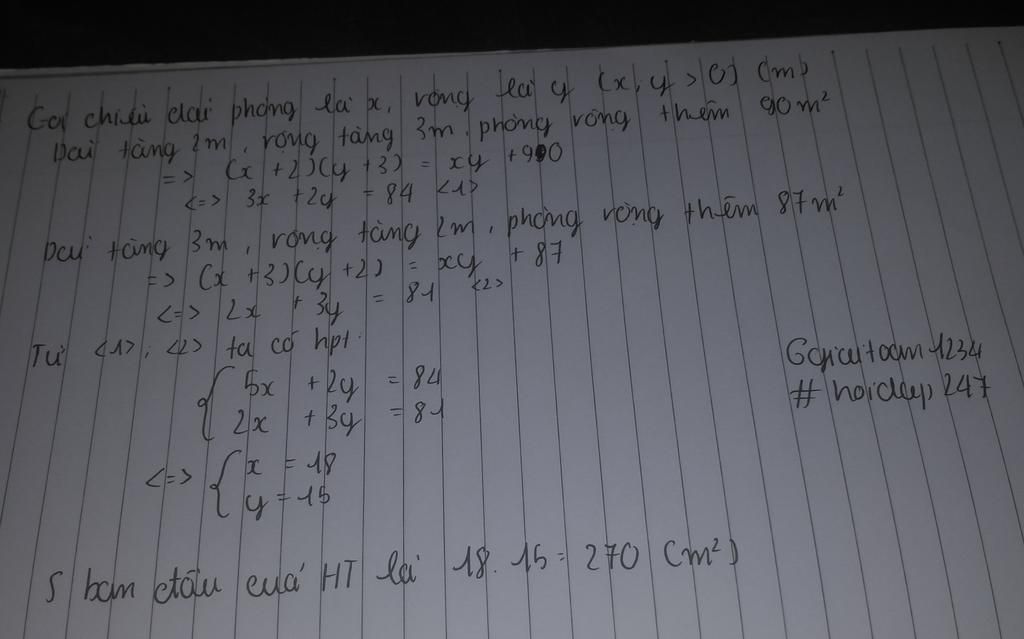 Gọi chiều dài phòng là x, rộng là y (x, y > 0) (m)
Dài tăng 2m, rộng tăng 3m, phòng rộng thêm 90m²
=> (x + 2)(y + 3) = xy + 90
<=> 3x + 2y = 84 <1>
Dài tăng 3m, rộng tăng 2m, phòng rộng thêm 87m²
=> (x + 3)(y + 2) = xy + 87
<=> 2x + 3y = 81 <2>
Từ <1>, <2> ta có hpt:
3x + 2y = 84
2x + 3y = 81
<=> x = 18
y = 15
S ban đầu của HT là 18. 15 = 270 (m²)
Ggiaitoan1234
# hoidap247